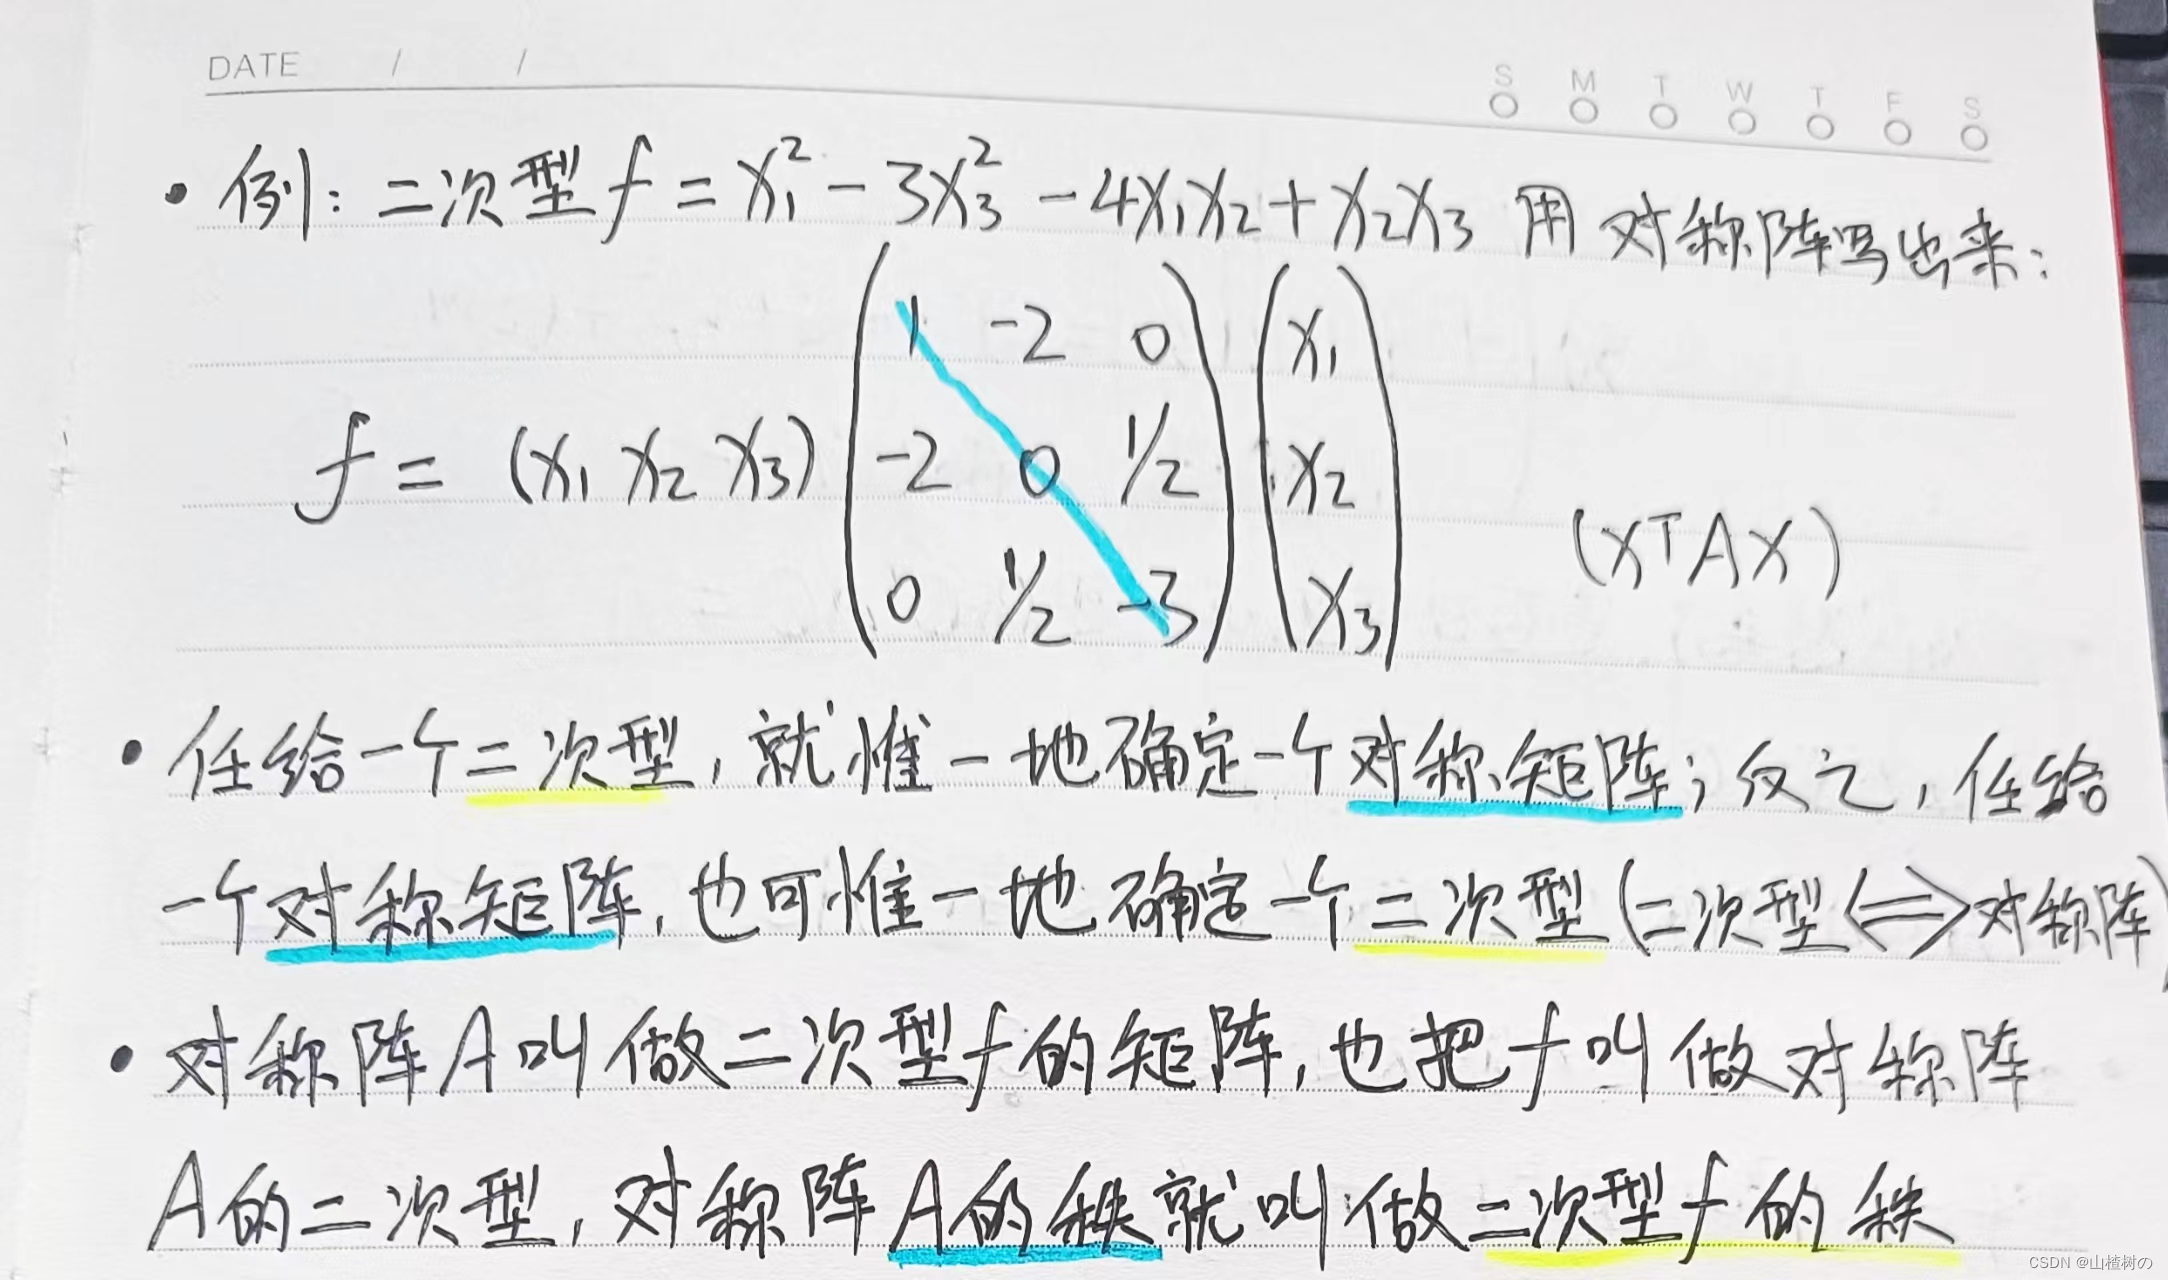 DATE / /
S M T W T F S
• 例: 二次型 f = x₁² - 3x₃² - 4x₁x₂ + x₂x₃ 用对称阵写出来:
1 -2 0 x₁
f = (x₁ x₂ x₃) -2 0 1/2 x₂
(xᵀAx)
0 1/2 -3 x₃
• 任给一个二次型, 就惟一地确定一个对称矩阵; 反之, 任给
一个对称矩阵, 也可惟一地确定一个二次型 (二次型 ⟺ 对称阵)
• 对称阵 A 叫做二次型 f 的矩阵, 也把 f 叫做对称阵
A 的二次型, 对称阵 A 的秩就叫做二次型 f 的秩
CSDN @山楂树の